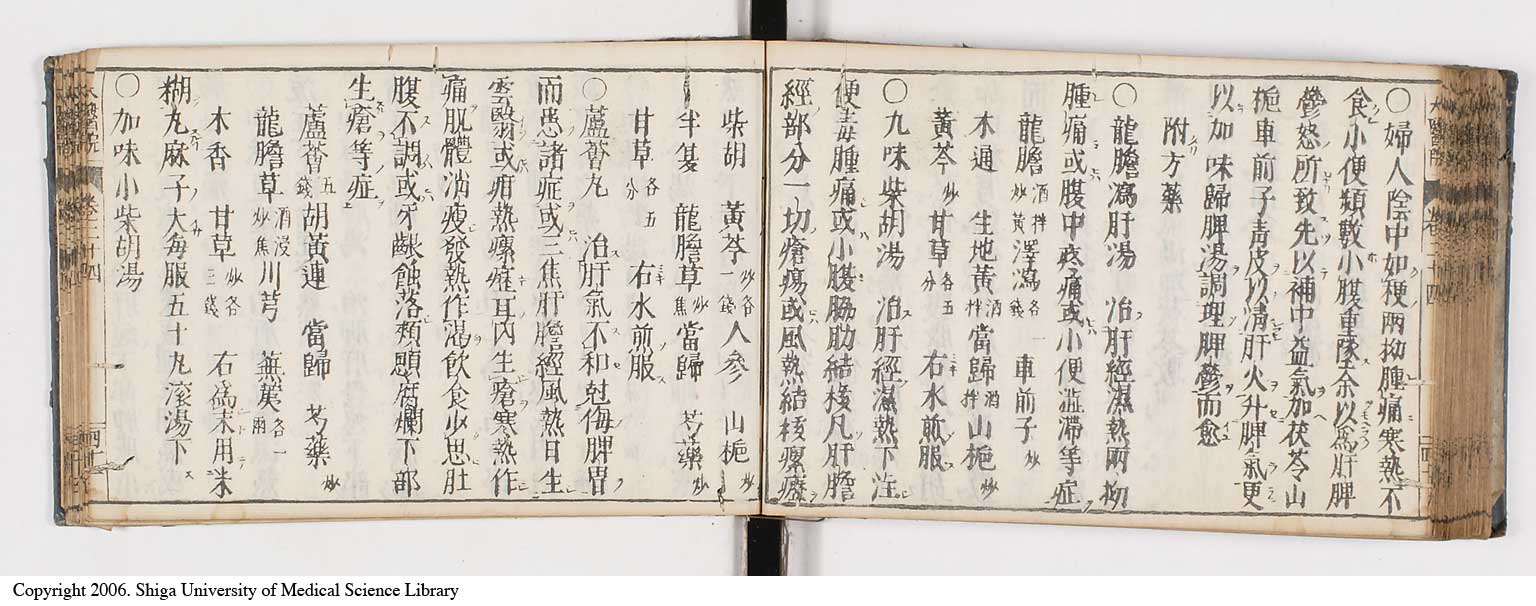 ○婦人陰中如梗兩拗腫痛寒熱不
食小便頻數小腹重墜余以爲肝脾
鬱怒所致先以補中益氣加茯苓山
梔車前子青皮以清肝火升脾氣更
以加味歸脾湯調理脾鬱而愈
附方藥
○龍膽瀉肝湯 治肝經濕熱兩拗
腫痛或腹中疼痛或小便澁滯等症
龍膽酒拌炒黃澤瀉各一錢 車前子炒
木通 生地黃酒拌當歸酒拌山梔炒
黃芩炒 甘草各五分 右水煎服
○九味柴胡湯 治肝經濕熱下注
便毒腫痛或小腹脇肋結核凡肝膽
經部分一切瘡瘍或風熱結核瘰癧
柴胡 黃芩炒各一錢人參 山梔炒
半夏 龍膽草炒焦當歸 芍藥炒
甘草各五分 右水煎服
○蘆薈丸 治肝氣不和尅侮脾胃
而患諸症或三焦肝膽經風熱目生
雲翳或疳熱瘰癧耳內生瘡寒熱作
痛脫體消瘦發熱作渴飲食少思肚
腹不調或牙齦蝕落頰腮腐爛下部
生瘡等症
蘆薈五錢胡黃連 當歸 芍藥炒
龍膽草酒浸炒焦川芎 蕪荑各一兩
木香 甘草炒各三錢 右爲末用米
糊丸麻子大每服五十丸滾湯下
○加味小柴胡湯
Copyright 2006. Shiga University of Medical Science Library